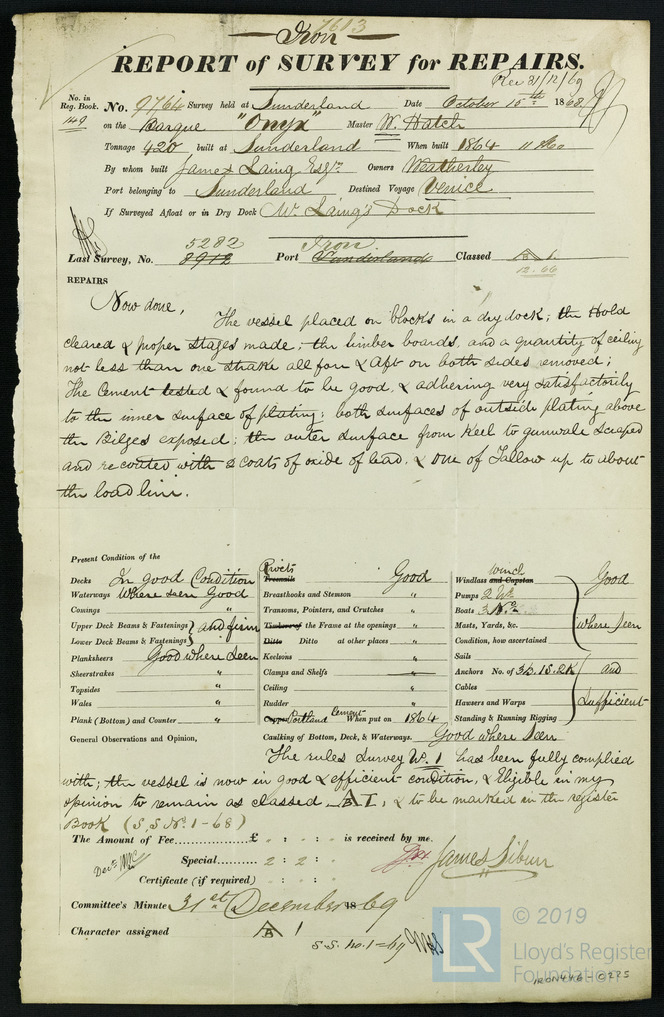 7613
Iron
REPORT of SURVEY for REPAIRS.
Rec 31/12/69
No. in Reg. Book. No. 9764 Survey held at Sunderland Date October 15th 1868
149 on the Barque "Onyx" Master W. Hatch
Tonnage 420 built at Sunderland When built 1864 11 Mo
By whom built James Laing Esqr. Owners Weatherley
Port belonging to Sunderland Destined Voyage Venice
If Surveyed Afloat or in Dry Dock Mr Laing's Dock
5282 Iron
Last Survey, No. 8912 Port Sunderland Classed A B 1
12.66
REPAIRS
Now done, The vessel placed on blocks in a dry dock; the Hold
cleared & proper stages made; the limber boards, and a quantity of ceiling
not less than one strake all fore & Aft on both sides removed;
The Cement tested & found to be good, & adhering very satisfactorily
to the inner surface of plating; both surfaces of outside plating above
the Bilges exposed; the outer surface from Keel to gunwale scraped
and recoated with 2 coats of oxide of lead, & one of Tallow up to about
the load line.
Present Condition of the
Decks In good Condition
Waterways Where seen Good
Comings "
Upper Deck Beams & Fastenings } and firm
Lower Deck Beams & Fastenings }
Planksheers Good where seen
Sheerstrakes "
Topsides "
Wales "
Plank (Bottom) and Counter "
General Observations and Opinion,
Rivets
Treenails Good
Breasthooks and Stemson "
Transoms, Pointers, and Crutches "
Timbers of the Frame at the openings "
Ditto Ditto at other places "
Keelsons "
Clamps and Shelfs
Ceiling "
Rudder "
Copper Portland Cement When put on 1864
Caulking of Bottom, Deck, & Waterways. Good where seen
winch
Windlass and Capstan Good
Pumps 2
Boats 3 No.
Masts, Yards, &c. where seen
Condition, how ascertained
Sails
Anchors No. of 3B. 1S. 2K and
Cables
Hawsers and Warps Sufficient
Standing & Running Rigging
The rules Survey No. 1 has been fully complied
with; the vessel is now in good & efficient condition, & Eligible in my
opinion to remain as classed A B 1, & to be marked in the register
Book (S.S. No. 1-68)
The Amount of Fee............... £ : : is received by me.
Special.......... 2 : 2 :
James Sibun
Certificate (if required) : :
Committee's Minute 31st December 1869
Character assigned A B 1
S.S. no. 1=69
© 2019
LR
Lloyd's Register
Foundation
IRON446-0225